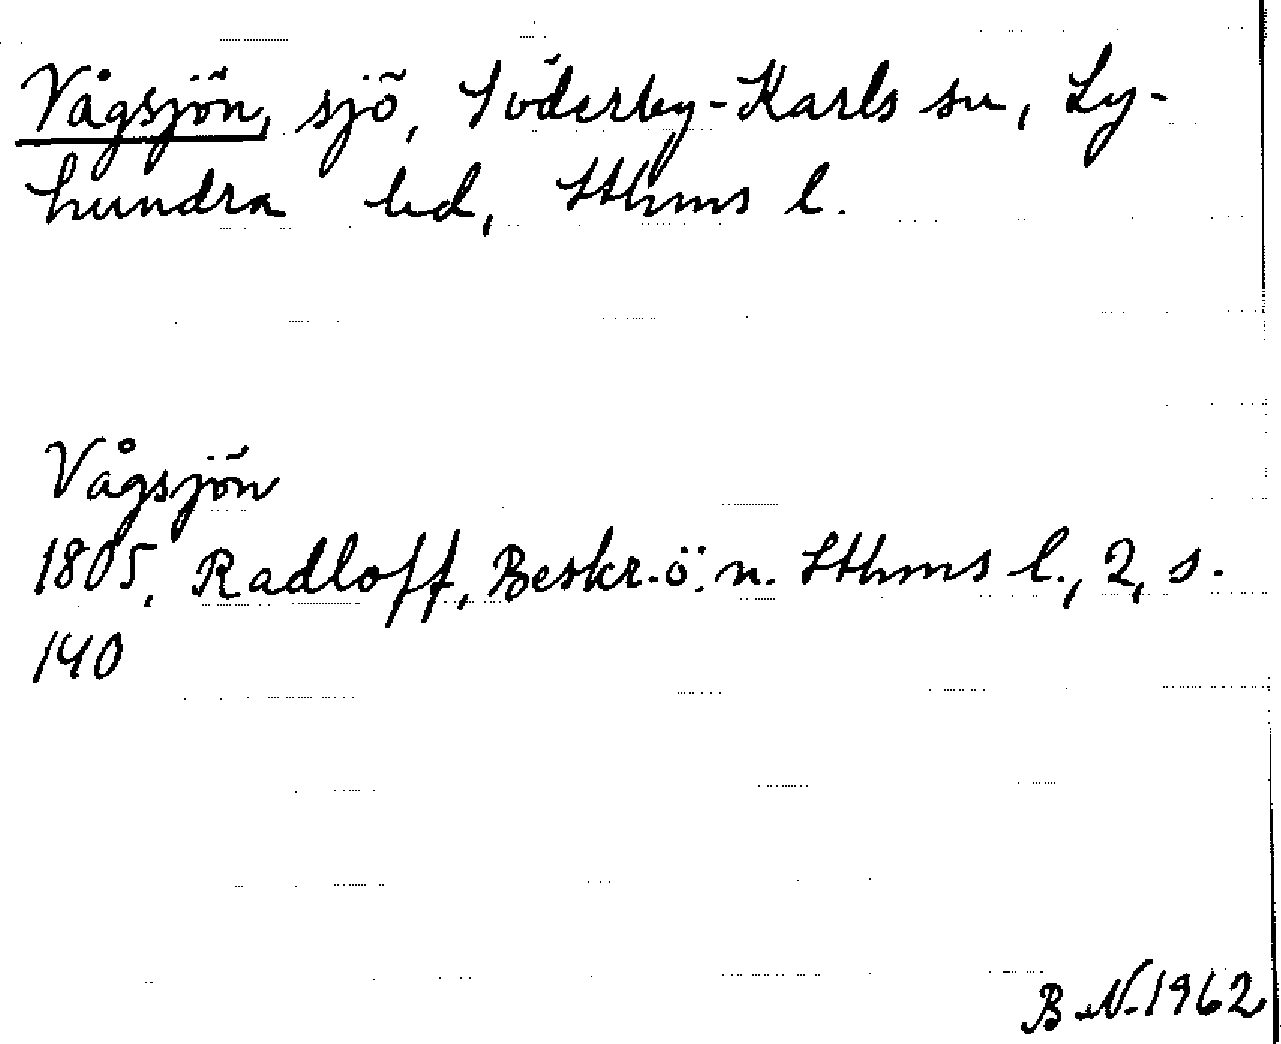 Vågsjön, sjö, Söderby-Karls sn, Ly-
hundra hd, Sthms l.
Vågsjön
1805, Radloff, Beskr. ö. n. Sthms l., 2, s.
140
B N. 1962